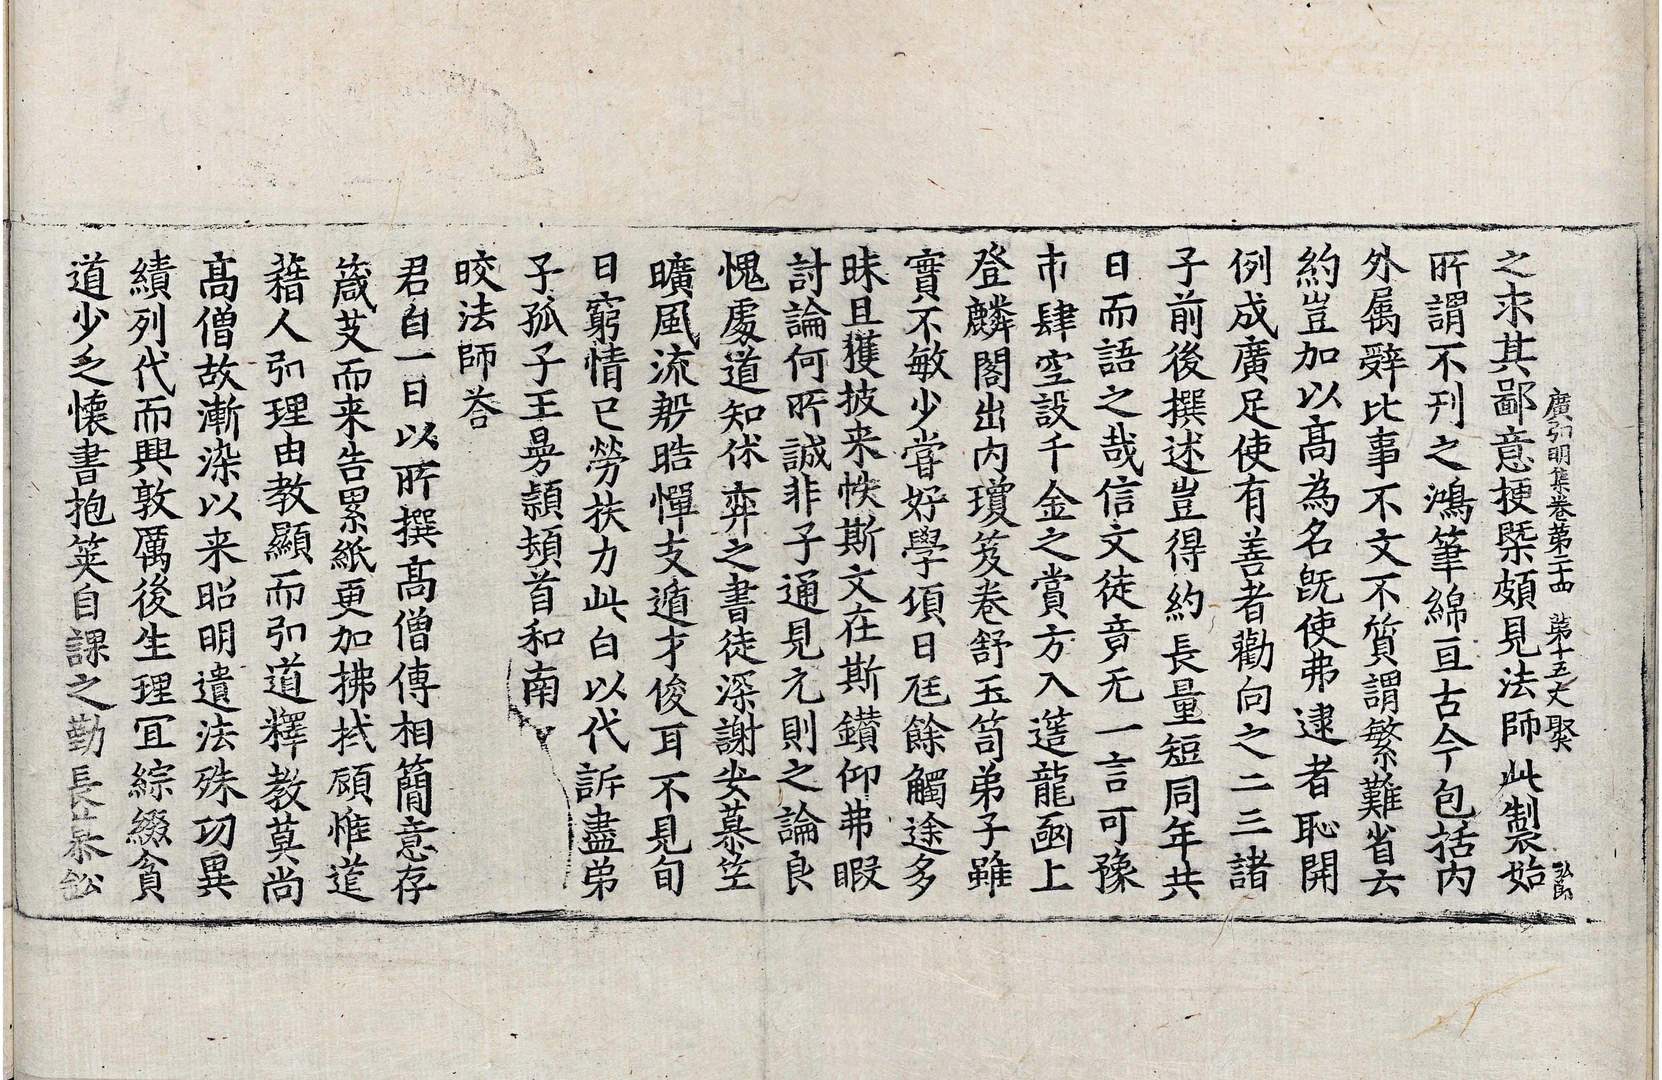 廣弘明集卷第二十四　第十五丈　聚
弘郎
之求其鄙意梗槩頗見法師此製始
所謂不刊之鴻筆綿亘古今包括内
外属辤比事不文不質謂繁難省云
約豈加以髙為名旣使弗逮者恥開
例成廣足使有善者勸向之二三諸
子前後撰述豈得約長量短同年共
日而語之哉信文徒竟无一言可豫
市肆空設千金之賞方入簉龍函上
登麟閣出内瓊笈卷舒玉笥弟子雖
實不敏少甞好學頃日尫餘觸途多
昧且獲披来帙斯文在斯鑚仰弗暇
討論何所誠非子通見元則之論良
愧處道知休弈之書徒深謝安慕竺
曠風流殷晧憚支遁才俊耳不見旬
日窮情已勞扶力此白以代訴盡弟
子孤子王曼頴頓首和南
皎法師荅
君白一日以所撰髙僧傳相簡意存
箴艾而来告累紙更加拂拭顧惟道
藉人弘理由教顯而弘道釋教莫尚
髙僧故漸染以来昭明遺法殊功異
績列代而興敦厲後生理宜綜綴貪
道少乏懷書抱筴自課之勤長